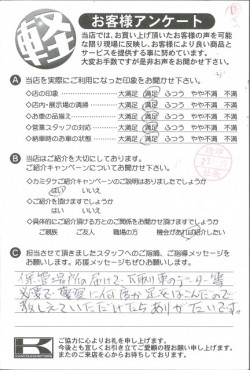 軽
お客様アンケート
当店では、お買い上げ頂いたお客様の声を可能
な限り現場に反映し、お客様により良い商品と
サービスを提供する事に努めています。
大変お手数ですが是非お声をお聞かせ下さい。
A 当店を実際にご利用になった印象をお聞かせ下さい。
◇店の印象 大満足 満足 ふつう やや不満 不満
◇店内・展示場の清掃 大満足 満足 ふつう やや不満 不満
◇お車の品揃え 大満足 満足 ふつう やや不満 不満
◇営業スタッフの対応 大満足 満足 ふつう やや不満 不満
◇納車時のお車の状態 大満足 満足 ふつう やや不満 不満
B 当店はご紹介を大切にしております。
ご紹介キャンペーンについてお聞かせ下さい。
◇カミタケご紹介キャンペーンのご説明はありましたでしょうか
はい いいえ
◇ご紹介を頂けますでしょうか
はい いいえ
◇具体的にご紹介頂ける方とのご関係をお聞かせ頂けますでしょうか
ご親族 ご友人 職場の方 機会があれば紹介したい
C 担当させて頂きましたスタッフへのご指摘、ご指導、ご指導メッセージを
お願いします。応援メッセージもぜひお願いします。
保管場所の届けで、下取り車のデーター等
必要で、警察に何度か足をはこんだので
教えていただけたらありがたいです。
K
ご協力に心よりお礼を申し上げます。
今後とも宜しくお引き立てご愛顧の程お願い申し上げます。
またのご来店を心からお待ちしております。